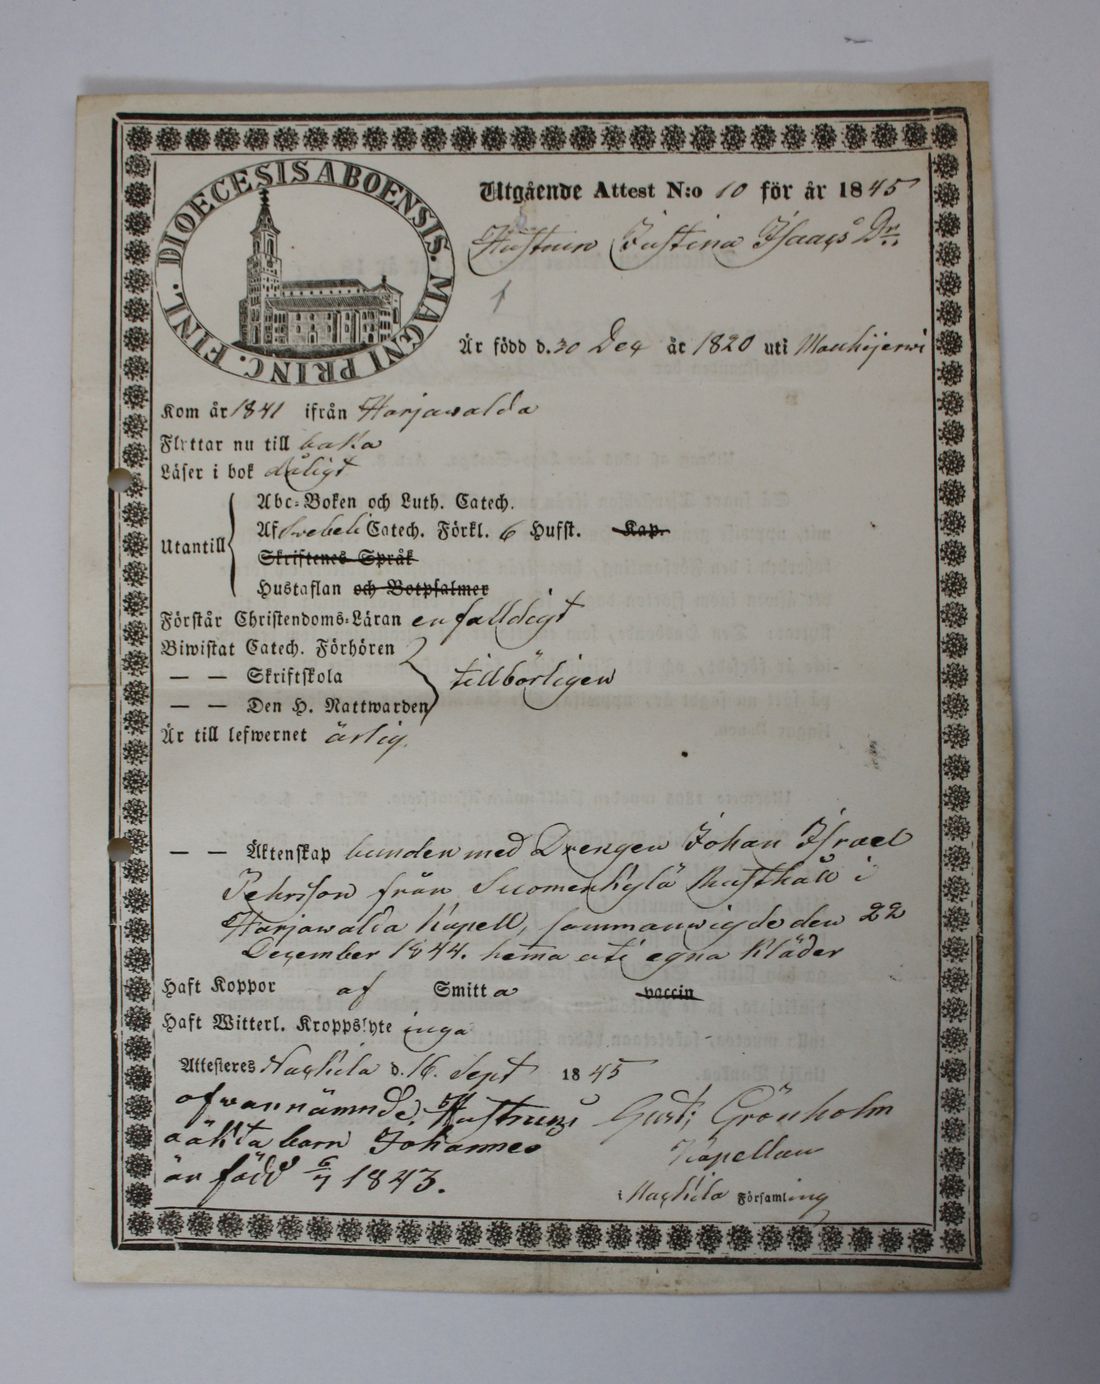 DIOECESIS ABOENSIS. MAGNI PRINC. FINL.
Utgående Attest N:o 10 för år 1845
Hustrun Justina Isaacs Dr.
Är född d. 30 Dec år 1820 uti Mouhijerwi
Kom år 1841 ifrån Harjawalda
Flyttar nu till baka
Läser i bok dåligt
Utantill
Abc-Boken och Luth. Catech.
Af Svebeli Catech. Förkl. 6 Hufst. Kap.
Skriftenes Språk
Hustaflan och Botpsalmer
Förstår Christendoms-Läran enfalldigt
Biwistat Catech. Förhören
— — Skriftskola tillbörligen
— — Den H. Nattwarden
Är till lefwernet ärlig
— — Äktenskap bunden med Drengen Johan Israel
Pehrsson från Suomenkylä Rusthåll i
Harjawalda Kapell, sammanwigde den 22
December 1844. hema uti egna Kläder
Haft Koppor af Smitta vaccin
Haft Witterl. Kroppslyte inga
Attesteres Nackila d. 16. Sept 1845
ofvannämnde Hustrus
oäkta barn Johannes
är född 6/7 1843.
Gust: Grönholm
Kapellan
i Nackila Församling